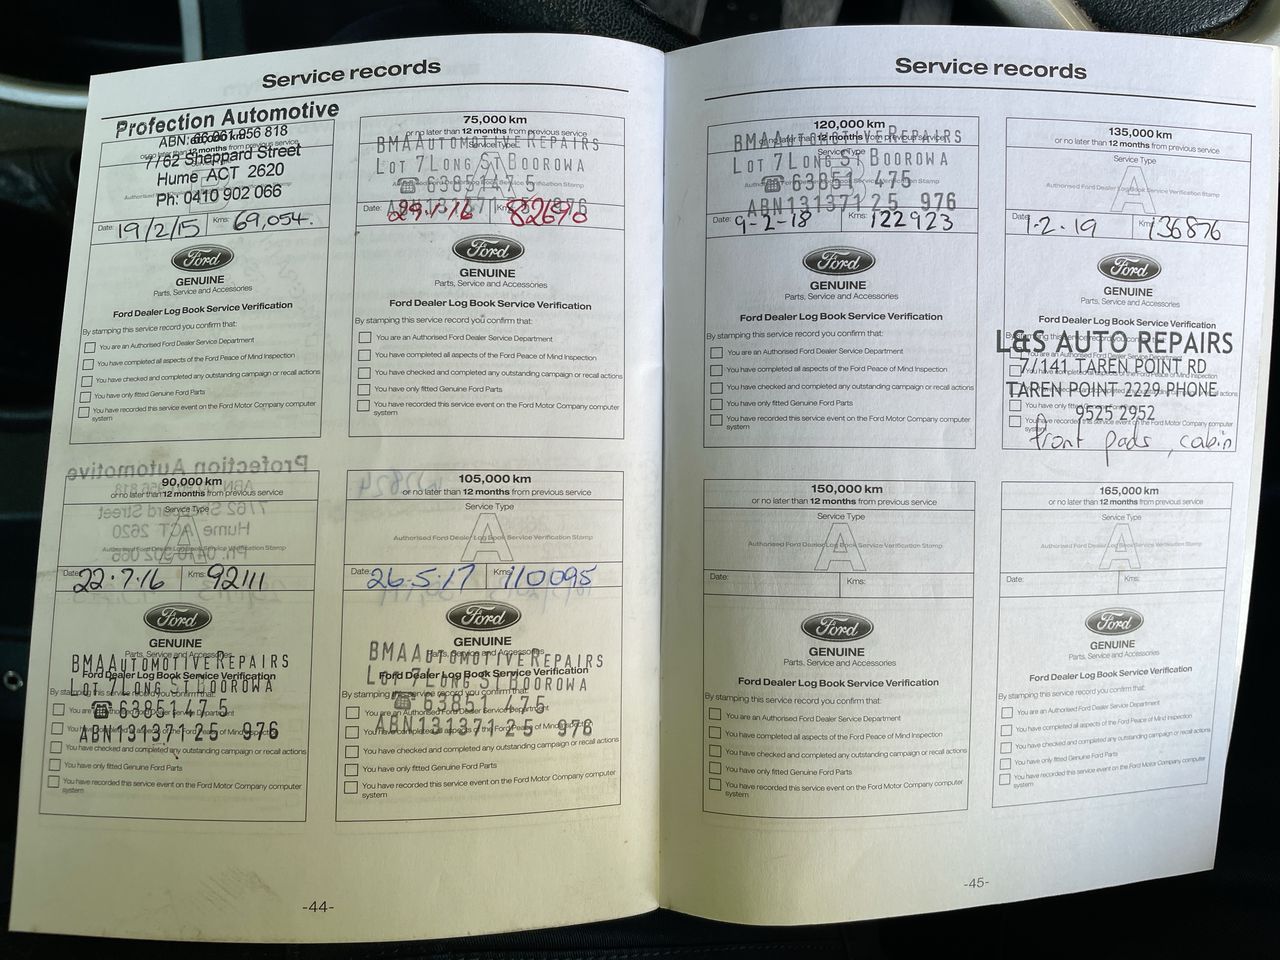 Service records
Protection Automotive
ABN: 66 061 956 818
or no later than 12 months from previous service
7/62 Sheppard Street
Hume ACT 2620
Ph: 0410 902 066
Date: 19/2/15 Kms: 69,054.
Ford
GENUINE
Parts, Service and Accessories
Ford Dealer Log Book Service Verification
By stamping this service record you confirm that:
You are an Authorised Ford Dealer Service Department
You have completed all aspects of the Ford Peace of Mind Inspection
You have checked and completed any outstanding campaign or recall actions
You have only fitted Genuine Ford Parts
You have recorded this service event on the Ford Motor Company computer
system
75,000 km
or no later than 12 months from previous service
Service Type
BMA AUTOMOTIVE REPAIRS
LOT 7 LONG ST BOOROWA
☎ 6385147 5
ABN131371 976
Date: 29.1.16 Kms: 82690
Ford
GENUINE
Parts, Service and Accessories
Ford Dealer Log Book Service Verification
By stamping this service record you confirm that:
You are an Authorised Ford Dealer Service Department
You have completed all aspects of the Ford Peace of Mind Inspection
You have checked and completed any outstanding campaign or recall actions
You have only fitted Genuine Ford Parts
You have recorded this service event on the Ford Motor Company computer
system
90,000 km
or no later than 12 months from previous service
Service Type
A
Authorised Ford Dealer Log Book Service Verification Stamp
Date: 22.7.16 Kms: 92111
Ford
GENUINE
Parts, Service and Accessories
BMA AUTOMOTIVE REPAIRS
Ford Dealer Log Book Service Verification
LOT 7 LONG ST BOOROWA
☎ 6385147 5
ABN13137125 976
You have checked and completed any outstanding campaign or recall actions
You have only fitted Genuine Ford Parts
You have recorded this service event on the Ford Motor Company computer
system
105,000 km
or no later than 12 months from previous service
Service Type
A
Authorised Ford Dealer Log Book Service Verification Stamp
Date: 26.5.17 Kms: 110095
Ford
GENUINE
Parts, Service and Accessories
BMA AUTOMOTIVE REPAIRS
Ford Dealer Log Book Service Verification
LOT 7 LONG ST BOOROWA
By stamping this service record you confirm that:
☎ 6385 475
You are an Authorised Ford Dealer Service Department
ABN13137125 976
You have completed all aspects of the Ford Peace of Mind Inspection
You have checked and completed any outstanding campaign or recall actions
You have only fitted Genuine Ford Parts
You have recorded this service event on the Ford Motor Company computer
system
-44-
Service records
120,000 km
or no later than 12 months from previous service
Service Type
BMA AUTOMOTIVE REPAIRS
LOT 7 LONG ST BOOROWA
☎ 63851 475
ABN13137125 976
Date: 9-2-18 Kms: 122923
Ford
GENUINE
Parts, Service and Accessories
Ford Dealer Log Book Service Verification
By stamping this service record you confirm that:
You are an Authorised Ford Dealer Service Department
You have completed all aspects of the Ford Peace of Mind Inspection
You have checked and completed any outstanding campaign or recall actions
You have only fitted Genuine Ford Parts
You have recorded this service event on the Ford Motor Company computer
system
135,000 km
or no later than 12 months from previous service
Service Type
A
Authorised Ford Dealer Log Book Service Verification Stamp
Date: 1.2.19 Kms: 136876
Ford
GENUINE
Parts, Service and Accessories
Ford Dealer Log Book Service Verification
L&S AUTO REPAIRS
7/141 TAREN POINT RD
TAREN POINT 2229 PHONE
9525 2952
front pads, cabin
150,000 km
or no later than 12 months from previous service
Service Type
A
Authorised Ford Dealer Log Book Service Verification Stamp
Date: Kms:
Ford
GENUINE
Parts, Service and Accessories
Ford Dealer Log Book Service Verification
By stamping this service record you confirm that:
You are an Authorised Ford Dealer Service Department
You have completed all aspects of the Ford Peace of Mind Inspection
You have checked and completed any outstanding campaign or recall actions
You have only fitted Genuine Ford Parts
You have recorded this service event on the Ford Motor Company computer
system
165,000 km
or no later than 12 months from previous service
Service Type
A
Authorised Ford Dealer Log Book Service Verification Stamp
Date: Kms:
Ford
GENUINE
Parts, Service and Accessories
Ford Dealer Log Book Service Verification
By stamping this service record you confirm that:
You are an Authorised Ford Dealer Service Department
You have completed all aspects of the Ford Peace of Mind Inspection
You have checked and completed any outstanding campaign or recall actions
You have only fitted Genuine Ford Parts
You have recorded this service event on the Ford Motor Company computer
system
-45-